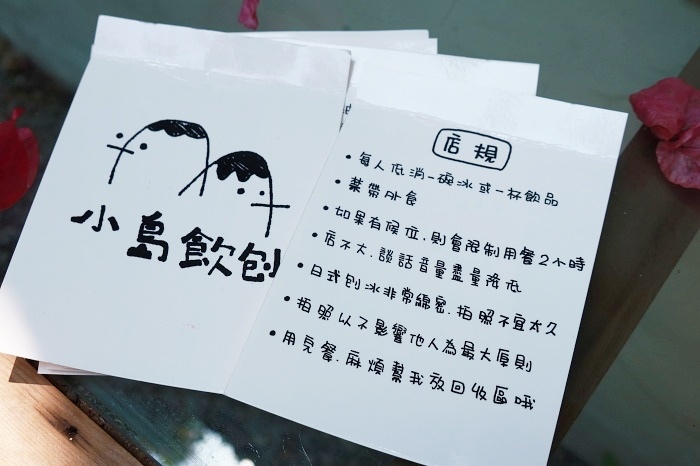 小島飲刨
店規
• 每人低消一碗冰或一杯飲品
• 禁帶外食
• 如果有候位,則會限制用餐2小時
• 店不大,談話音量盡量降低
• 日式刨冰非常綿密,拍照不宜太久
• 拍照以不影響他人為最大原則
• 用完餐,麻煩幫我放回收區哦